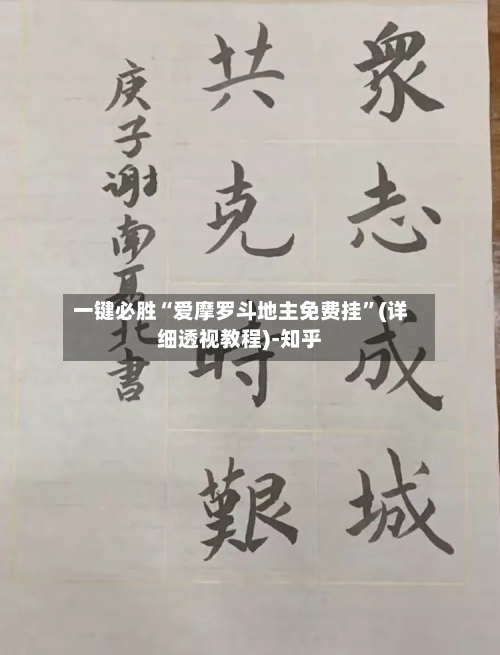 衆志成城
共克時艱
庚子谢南夏北書
一键必胜“爱摩罗斗地主免费挂”(详
细透视教程)-知乎